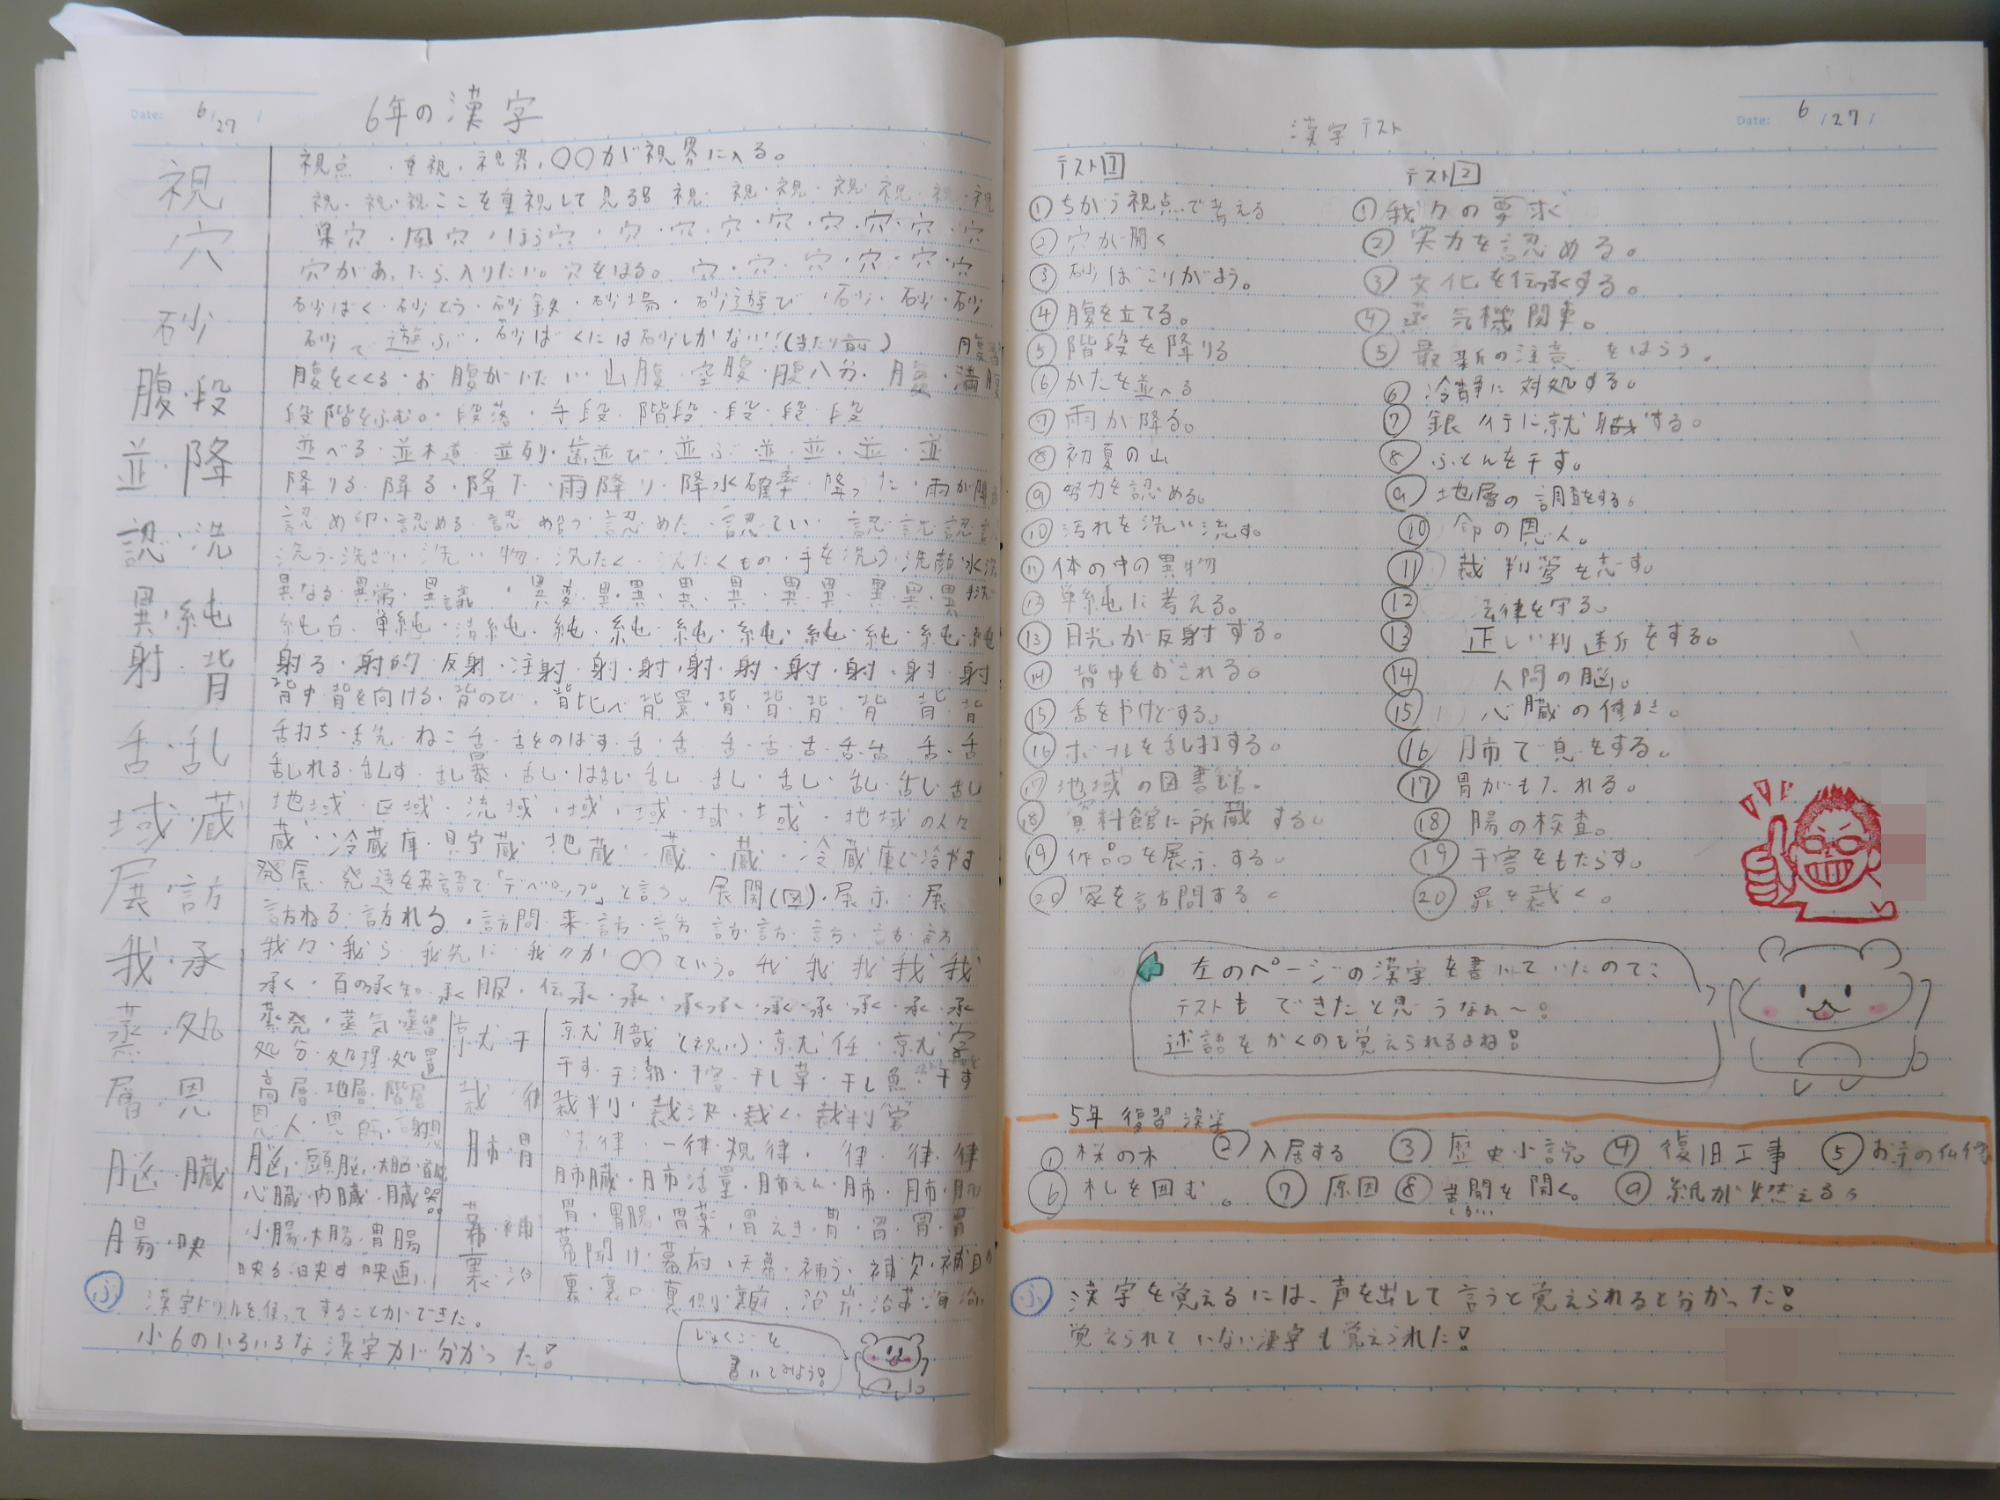 Date: 6/27
6年の漢字
視
穴
砂
腹・段
並・降
認・洗
異・純
射・背
舌・乱
域・蔵
展・訪
我・承
蒸・処
層・恩
脳・臓
腸・映
視点・重視・視界・〇〇が視界に入る。
視・視・視ここを重視して見る
巣穴・風穴・ほら穴・穴・穴・穴・穴・穴・穴・穴
穴があったら入りたい。穴をほる。穴・穴・穴・穴・穴・穴
砂ばく・砂とう・砂鉄・砂場・砂遊び・砂・砂・砂
砂で遊ぶ・砂ばくには砂しかない!!(当たり前)
腹をくくる・お腹がいたい・山腹・空腹・腹八分・腹・満腹
段階をふむ。段落・手段・階段・段・段・段
並べる・並木道・並列・歯並び・並ぶ・並・並・並・並
降りる・降る・降下・雨降り・降水確率・降った・雨が降
認め印・認める・認め合う・認めた・認てい
洗う・洗ざい・洗い物・洗たく・せんたくもの・手を洗う・洗顔
異なる・異常・異議・異変・異・異・異・異・異・異・異・異・異
純白・単純・清純・純・純・純・純・純・純・純・純
射る・射的・反射・注射・射・射・射・射・射・射・射・射
背中・背を向ける・背のび・背比べ・背景・背・背・背・背・背・背
舌打ち・舌先・ねこ舌・舌をのばす・舌・舌・舌・舌・舌・舌・舌・舌・舌
地域・区域・流域・域・域・域・域・地域の人々
蔵・冷蔵庫・貯蔵・地蔵・蔵・蔵・冷蔵庫で冷やす
発展・発達を英語で「デベロップ」と言う。展開(図)・展示・展
訪ねる・訪れる・訪問・来訪・訪・訪・訪・訪・訪・訪
我々・我ら・我先に・我々が〇〇という。我・我・我・我・我
蒸発・蒸気・蒸留
処分・処理・処置
高層・地層・階層
脳・頭脳・大脳・首脳
心臓・内臓・臓器
小腸・大腸・胃腸
映る・映す・映画
就 干
裁 律
肺・胃
幕・補
裏・沿
就職(祝い)・就任・就学
干す・干潮・干害・干し草・干し魚・干す
裁判・裁決・裁く・裁判官
法律・一律・規律・律・律・律
肺臓・肺活量・肺えん・肺・肺・肺
胃・胃腸・胃薬・胃えき・胃・胃・胃・胃
幕開け・幕府・天幕・補う・補欠・補
裏・裏口・裏側・裏庭・沿岸・沿革
ふ 漢字ドリルを使ってすることができた。
小6のいろいろな漢字が分かった!
じゅくごを
書いてみよう!
漢字テスト
Date: 6/27/
テスト1
①ちがう視点で考える
②穴が開く
③砂ぼこりがまう。
④腹を立てる。
⑤階段を降りる
⑥かたを並べる
⑦雨が降る。
⑧初夏の山
⑨努力を認める。
⑩汚れを洗い流す。
⑪体の中の異物
⑫単純に考える。
⑬月光が反射する。
⑭背中をおされる。
⑮舌をやけどする。
⑯ボールを乱打する。
⑰地域の図書館。
⑱資料館に所蔵する。
⑲作品を展示する。
⑳家を訪問する。
テスト2
①我々の要求
②実力を認める。
③文化を伝承する。
④蒸気機関車。
⑤最新の注意をはらう。
⑥冷静に対処する。
⑦銀行に就職する。
⑧ふとんを干す。
⑨地層の調査をする。
⑩命の恩人。
⑪裁判官を志す。
⑫法律を守る。
⑬正しい判断をする。
⑭人間の脳。
⑮心臓の働き。
⑯肺で息をする。
⑰胃がもたれる。
⑱腸の検査。
⑲干害をもたらす。
⑳罪を裁く。
左のページの漢字を書いていたので、
テストもできたと思うなぁ〜!
述語をかくのも覚えられるよね!
5年 復習漢字
①桜の木 ②入居する ③歴史小説 ④復旧工事 ⑤お寺の仏像
⑥札を囲む。 ⑦原因 ⑧ 新聞を開く。 ⑨紙が燃える。
ふ 漢字を覚えるには、声を出して言うと覚えられると分かった!
覚えられていない漢字も覚えられた!